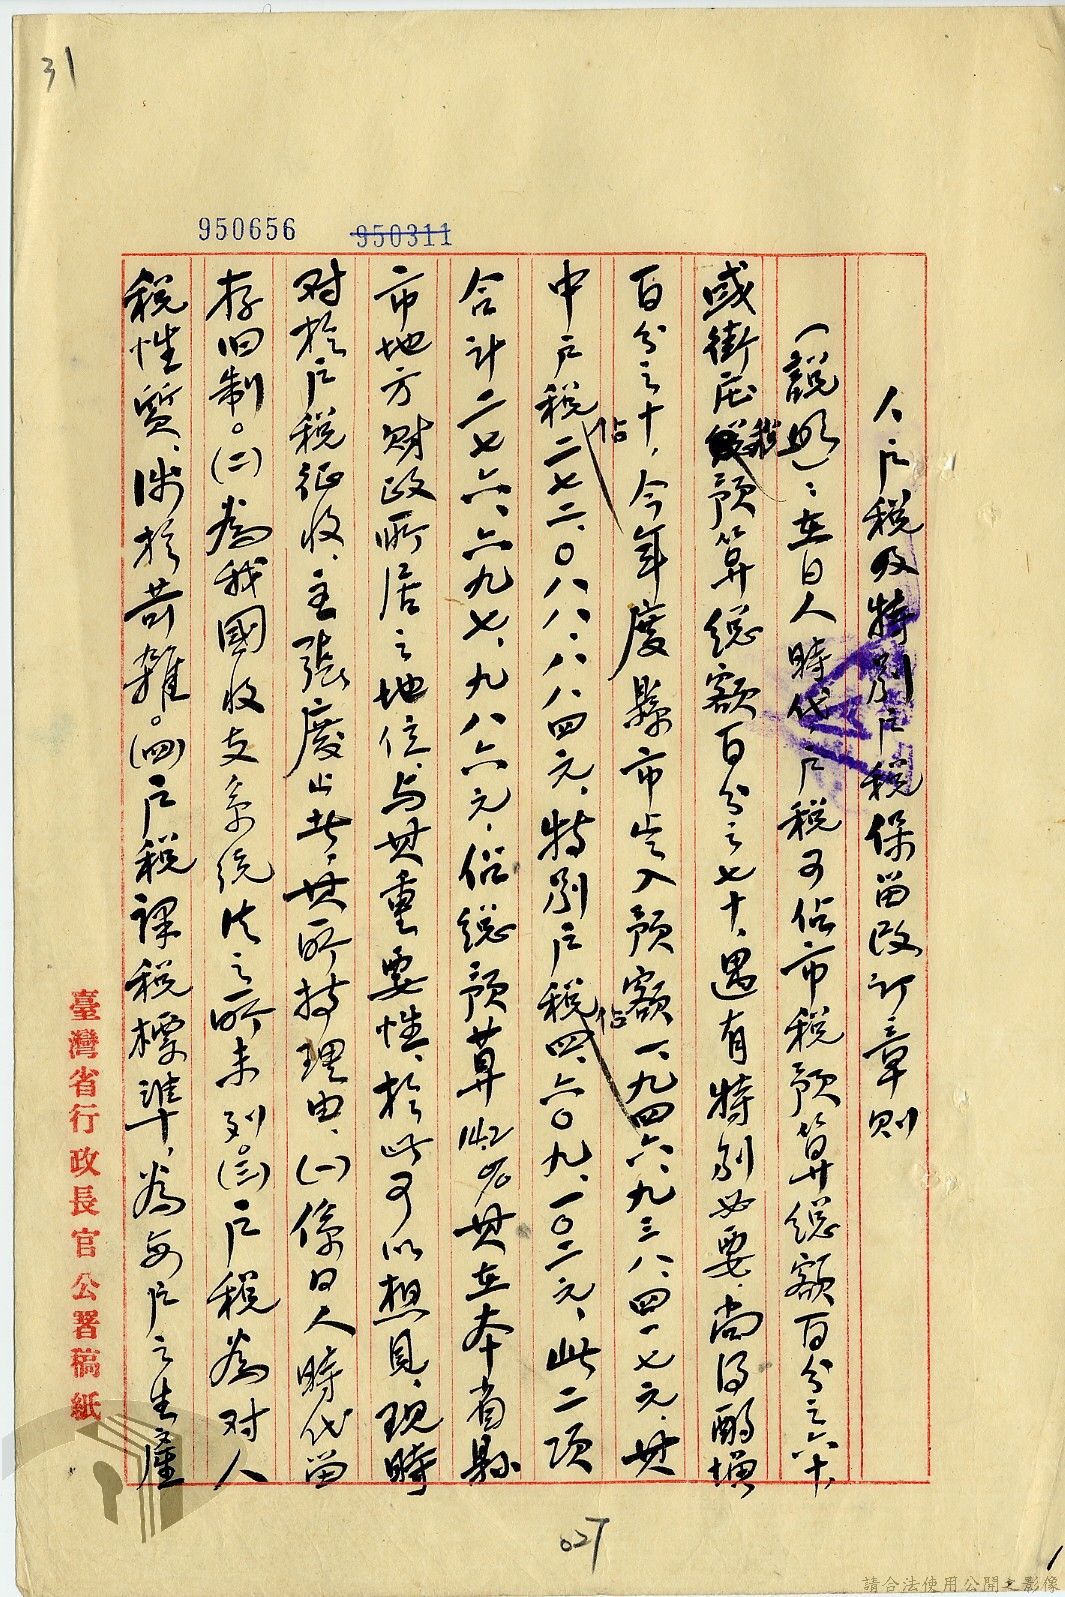 31
950656
950311
人戶税及特別戶税保留改訂章則
(説明):在日人時代、戶税可佔市税預算總額百分之六十、
或街庄税預算總額百分之七十、遇有特別必要、尚得酌增
百分之十、今年度縣市歲入預額一、九四六、九三八、四一七元、其
中戶税佔二七二、〇八八、八八四元、特別戶税佔四、六〇九、一〇二元、此二項
合計二七六、六九七、九八六元、佔總預算14.2%其在本省縣
市地方財政所居之地位、与其重要性、於此可以想見、現時
对於戶税征收、主張廢止者、其所持理由、(一)係日人時代留
存旧制。(二)為我國收支系统法之所未列。(三)戶税為对人
税性質、涉於苛雜。(四)戶税課税標準、為每戶之生產
臺灣省行政長官公署稿紙
027
請合法使用公開之影像